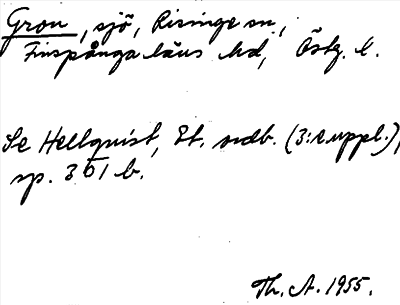 Gron, sjö, Risinge sn,
Finspånga läns hd, Östg. l.
Se Hellquist, Et. ordb. (3:e uppl.),
sp. 301 b.
Th. A. 1955.